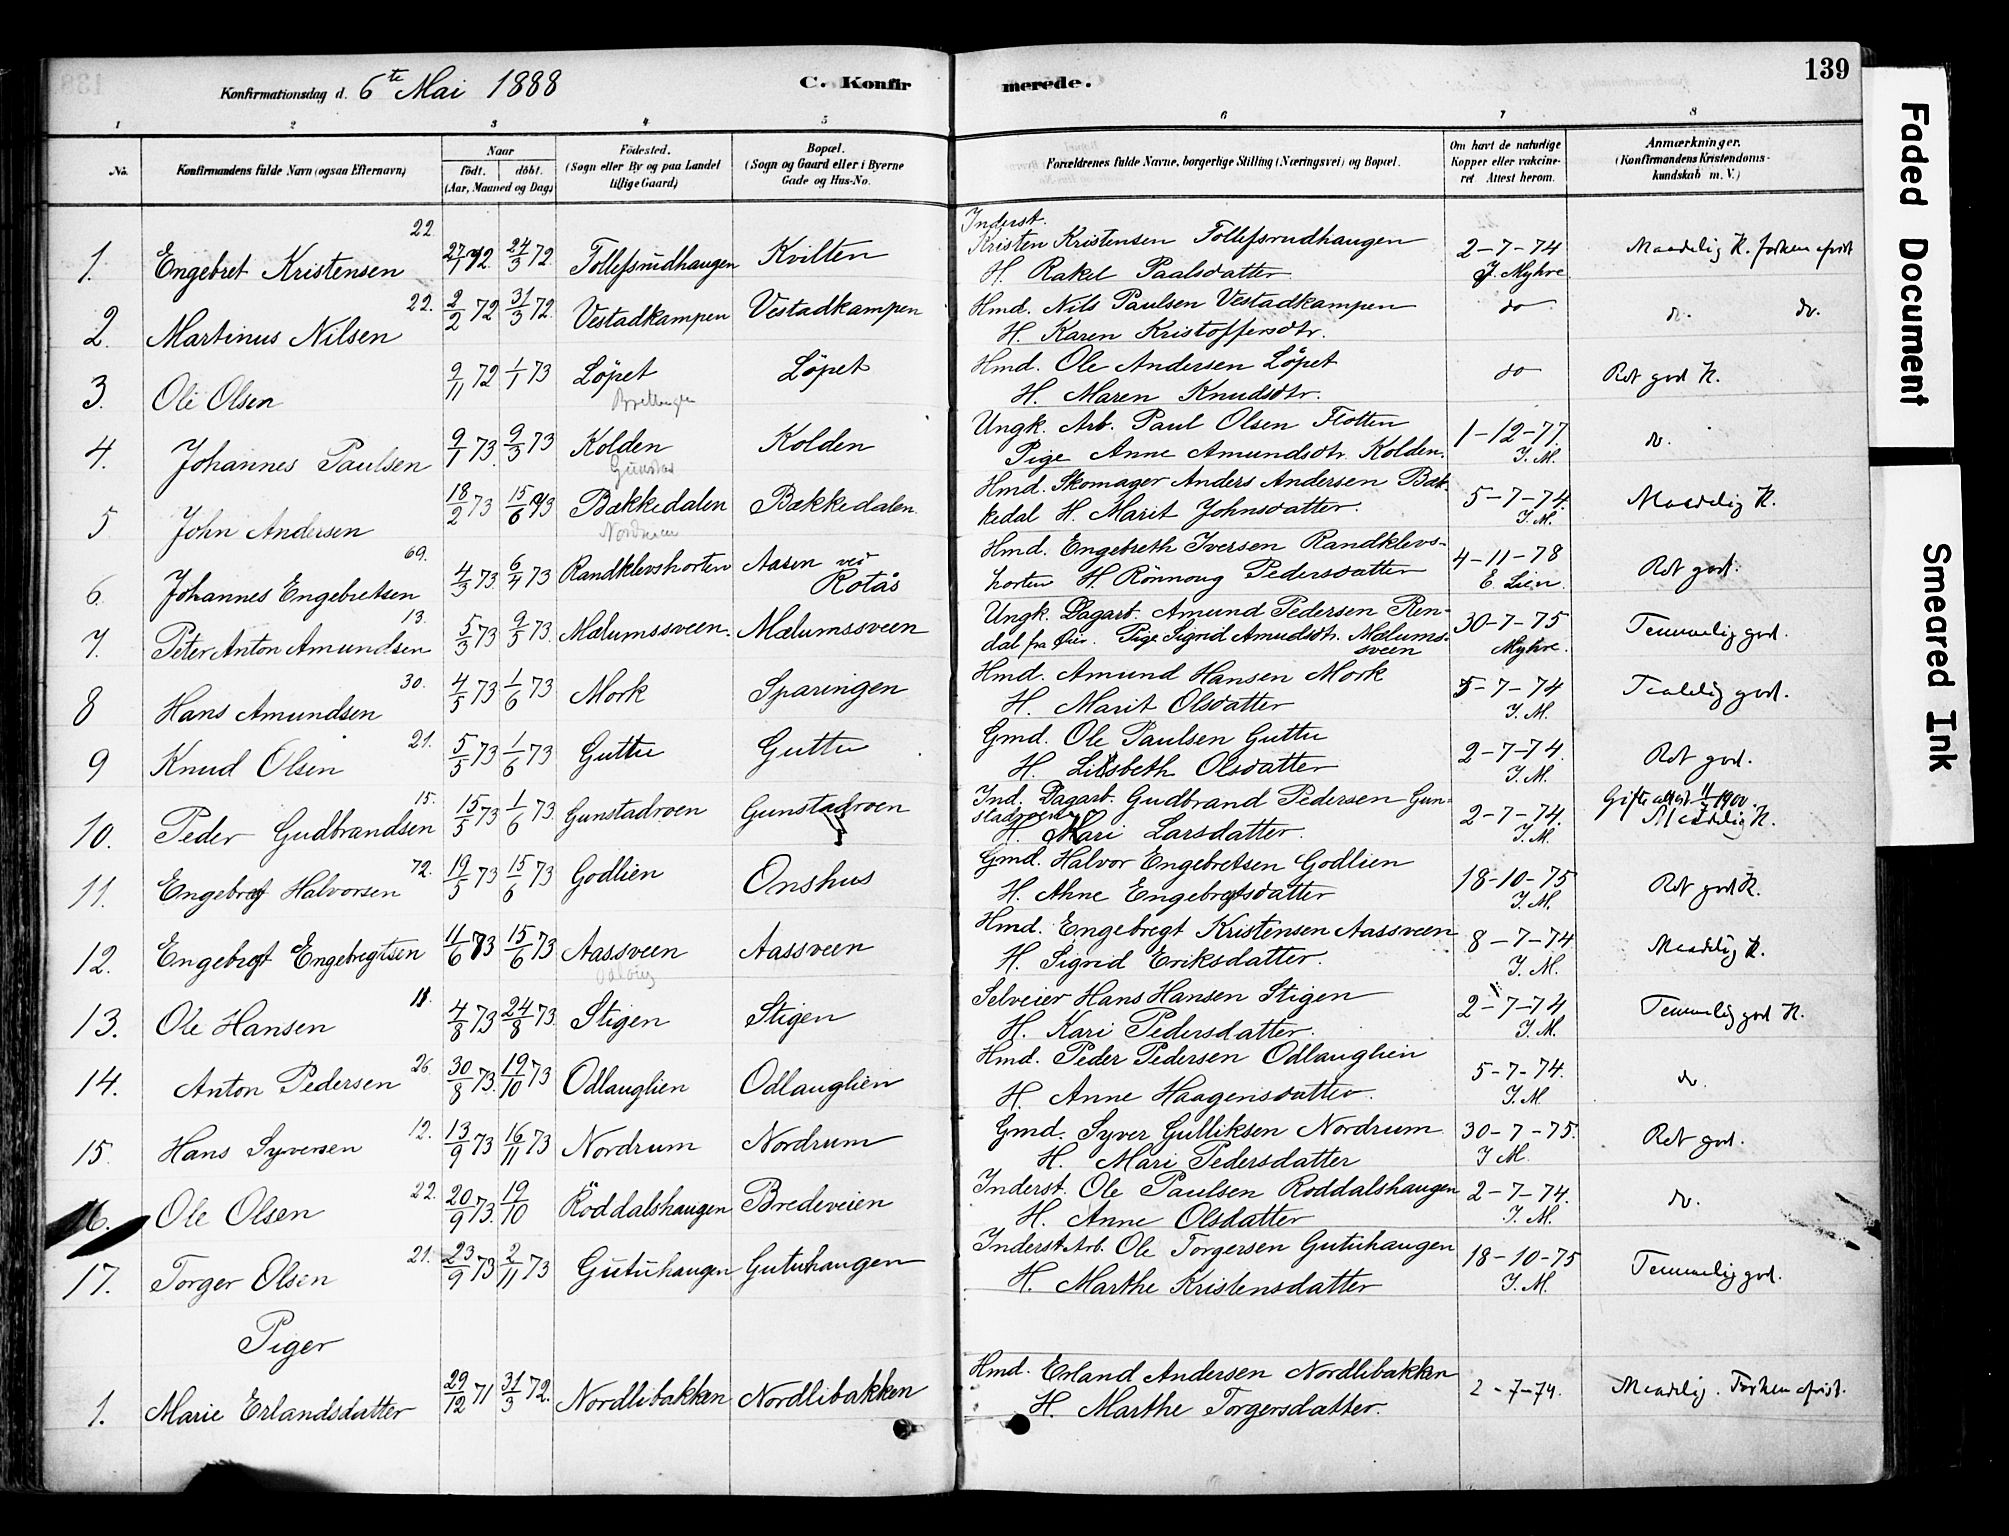 139
Konfirmationsdag d. 6te Mai 1888 C. Konfirmerede.
1 2 3 4 5 6 7 8
No. Konfirmandens fulde Navn (ogsaa Efternavn) Naar født. døbt. (Aar, Maaned og Dag) Fødested. (Sogn eller By og paa Landet tillige Gaard) Bopæl. (Sogn og Gaard eller i Byerne Gade og Hus-No. Forældrenes fulde Navne, borgerlige Stilling (Næringsvei) og Bopæl. Om havt de naturlige Kopper eller vakcineret Attest herom. Anmærkninger. (Konfirmandens Kristendomskundskab m. V.)
22. Inderst.
1. Engebret Kristensen 27/1 72 24/3 72. Tollefsrudhaugen Kvilten Kristen Kristensen Tollefsrudhaugen 2-7-74 Maadelig K.
H. Rakel Paalsdatter J. Myhre
2. Martinus Nilsen 22. 2/2 72 31/3 72. Vestadkampen Vestadkampen Hmd. Nils Paulsen Vestadkampen do do. do.
H. Karen Kristoffersdtr.
3. Ole Olsen 9/11 72 1/1 73 Löpet Löpet Hmd. Ole Andersen Löpet do Ret god K.
H. Maren Knudsdtr.
4. Johannes Paulsen 9/1 73. 9/3 73 Kolden Kolden Ungk. Arb. Paul Olsen Flotten 1-12-77. do.
Pige Anne Amundsdtr. Kolden. J. M.
5 John Andersen 18/2 73 15/6 73 Bækkedalen Bækkedalen. Hmd. Skomager Anders Andersen Bæk- 5-7-74. Maadelig K.
kedal H. Marit Johnsdatter. J. M.
6. Johannes Engebretsen 69. 4/3 73. 6/4 73 Randklevshorten Aasen ved Rotås Hmd. Engebreth Iversen Randklevs- 4-11-78 Ret god.
horten H. Rönnoug Pedersdatter E. Lien.
7. Peter Anton Amundsen 13. 5/3 73 9/5 73. Mælumssveen. Mælumssveen Ungk. Dagarb. Amund Pedersen Ren- 30-7-75 Temmelig god.
dal fra Øier. Pige Sigrid Amudsdtr. Mælums- sveen Myhre.
8 Hans Amundsen 30. 4/5 73. 1/6 73 Mork Sparingen Hmd. Amund Hansen Mork 5-7-74 Taalelig god.
H. Marit Olsdatter J. M.
9 Knud Olsen 21. 5/5 73 1/6 73 Guttu Guttu Gmd. Ole Paulsen Guttu 2-7-74. Ret god.
H. Lisbeth Olsdatter J. M.
10. Peder Gudbrandsen 15. 15/5 73 1/6 73. Gunstadroen Gunstadroen Ind. Dagarb. Gudbrand Pedersen Gun- 2-7-74. Gifte attest 11/7 1900.
stadroen H. Mari Larsdatter. J. M. Maadelig K.
11. Engebregt Halvorsen 72. 19/5 73 15/6 73 Godlien Onshus Gmd. Halvor Engebretsen Godlien 18-10-75 Ret god K.
H. Anne Engebregtsdatter J. M.
12. Engebregt Engebregtsen 11/6 73 15/6 73 Aassveen Aassveen Hmd. Engebregt Kristensen Aassveen 8-7-74 Maadelig K.
H. Sigrid Eriksdatter. J. M.
13. Ole Hansen 18. 4/8 73 24/8 73. Stigen Stigen Selveier Hans Hansen Stigen 2-7-74 Temmelig god K.
H. Kari Pedersdatter. J. M.
14. Anton Pedersen 26. 30/8 73. 19/10 73 Odlauglien Odlauglien Hmd. Peder Pedersen Odlauglien 5-7-74. do.
H. Anne Haagensdatter. J. M.
15. Hans Syversen 12. 13/9 73 16/11 73 Nordrum Nordrum Gmd. Syver Gulliksen Nordrum 30-7-75. Ret god.
H. Mari Pedersdatter J M.
16. Ole Olsen 22. 20/9 73. 19/10 Röddalshaugen Bredeveien Inderst. Ole Paulsen Roddalshaugen 2-7-74. do.
H. Anne Olsdatter J. M.
17. Torger Olsen 21. 23/9 73 2/11 73 Gutuhaugen Gutuhaugen Inderst Arb. Ole Torgersen Gutuhaugen 18-10-75 Temmelig god.
H. Marthe Kristensdatter J. M.
Piger
1. Marie Erlandsdatter 29/12 71 31/3 72. Nordlibakken Nordlibakken Hmd. Erland Andersen Nordlibakken 2-7-74. Maadelig.
H. Marthe Torgersdatter.
Faded Document
Smeared Ink